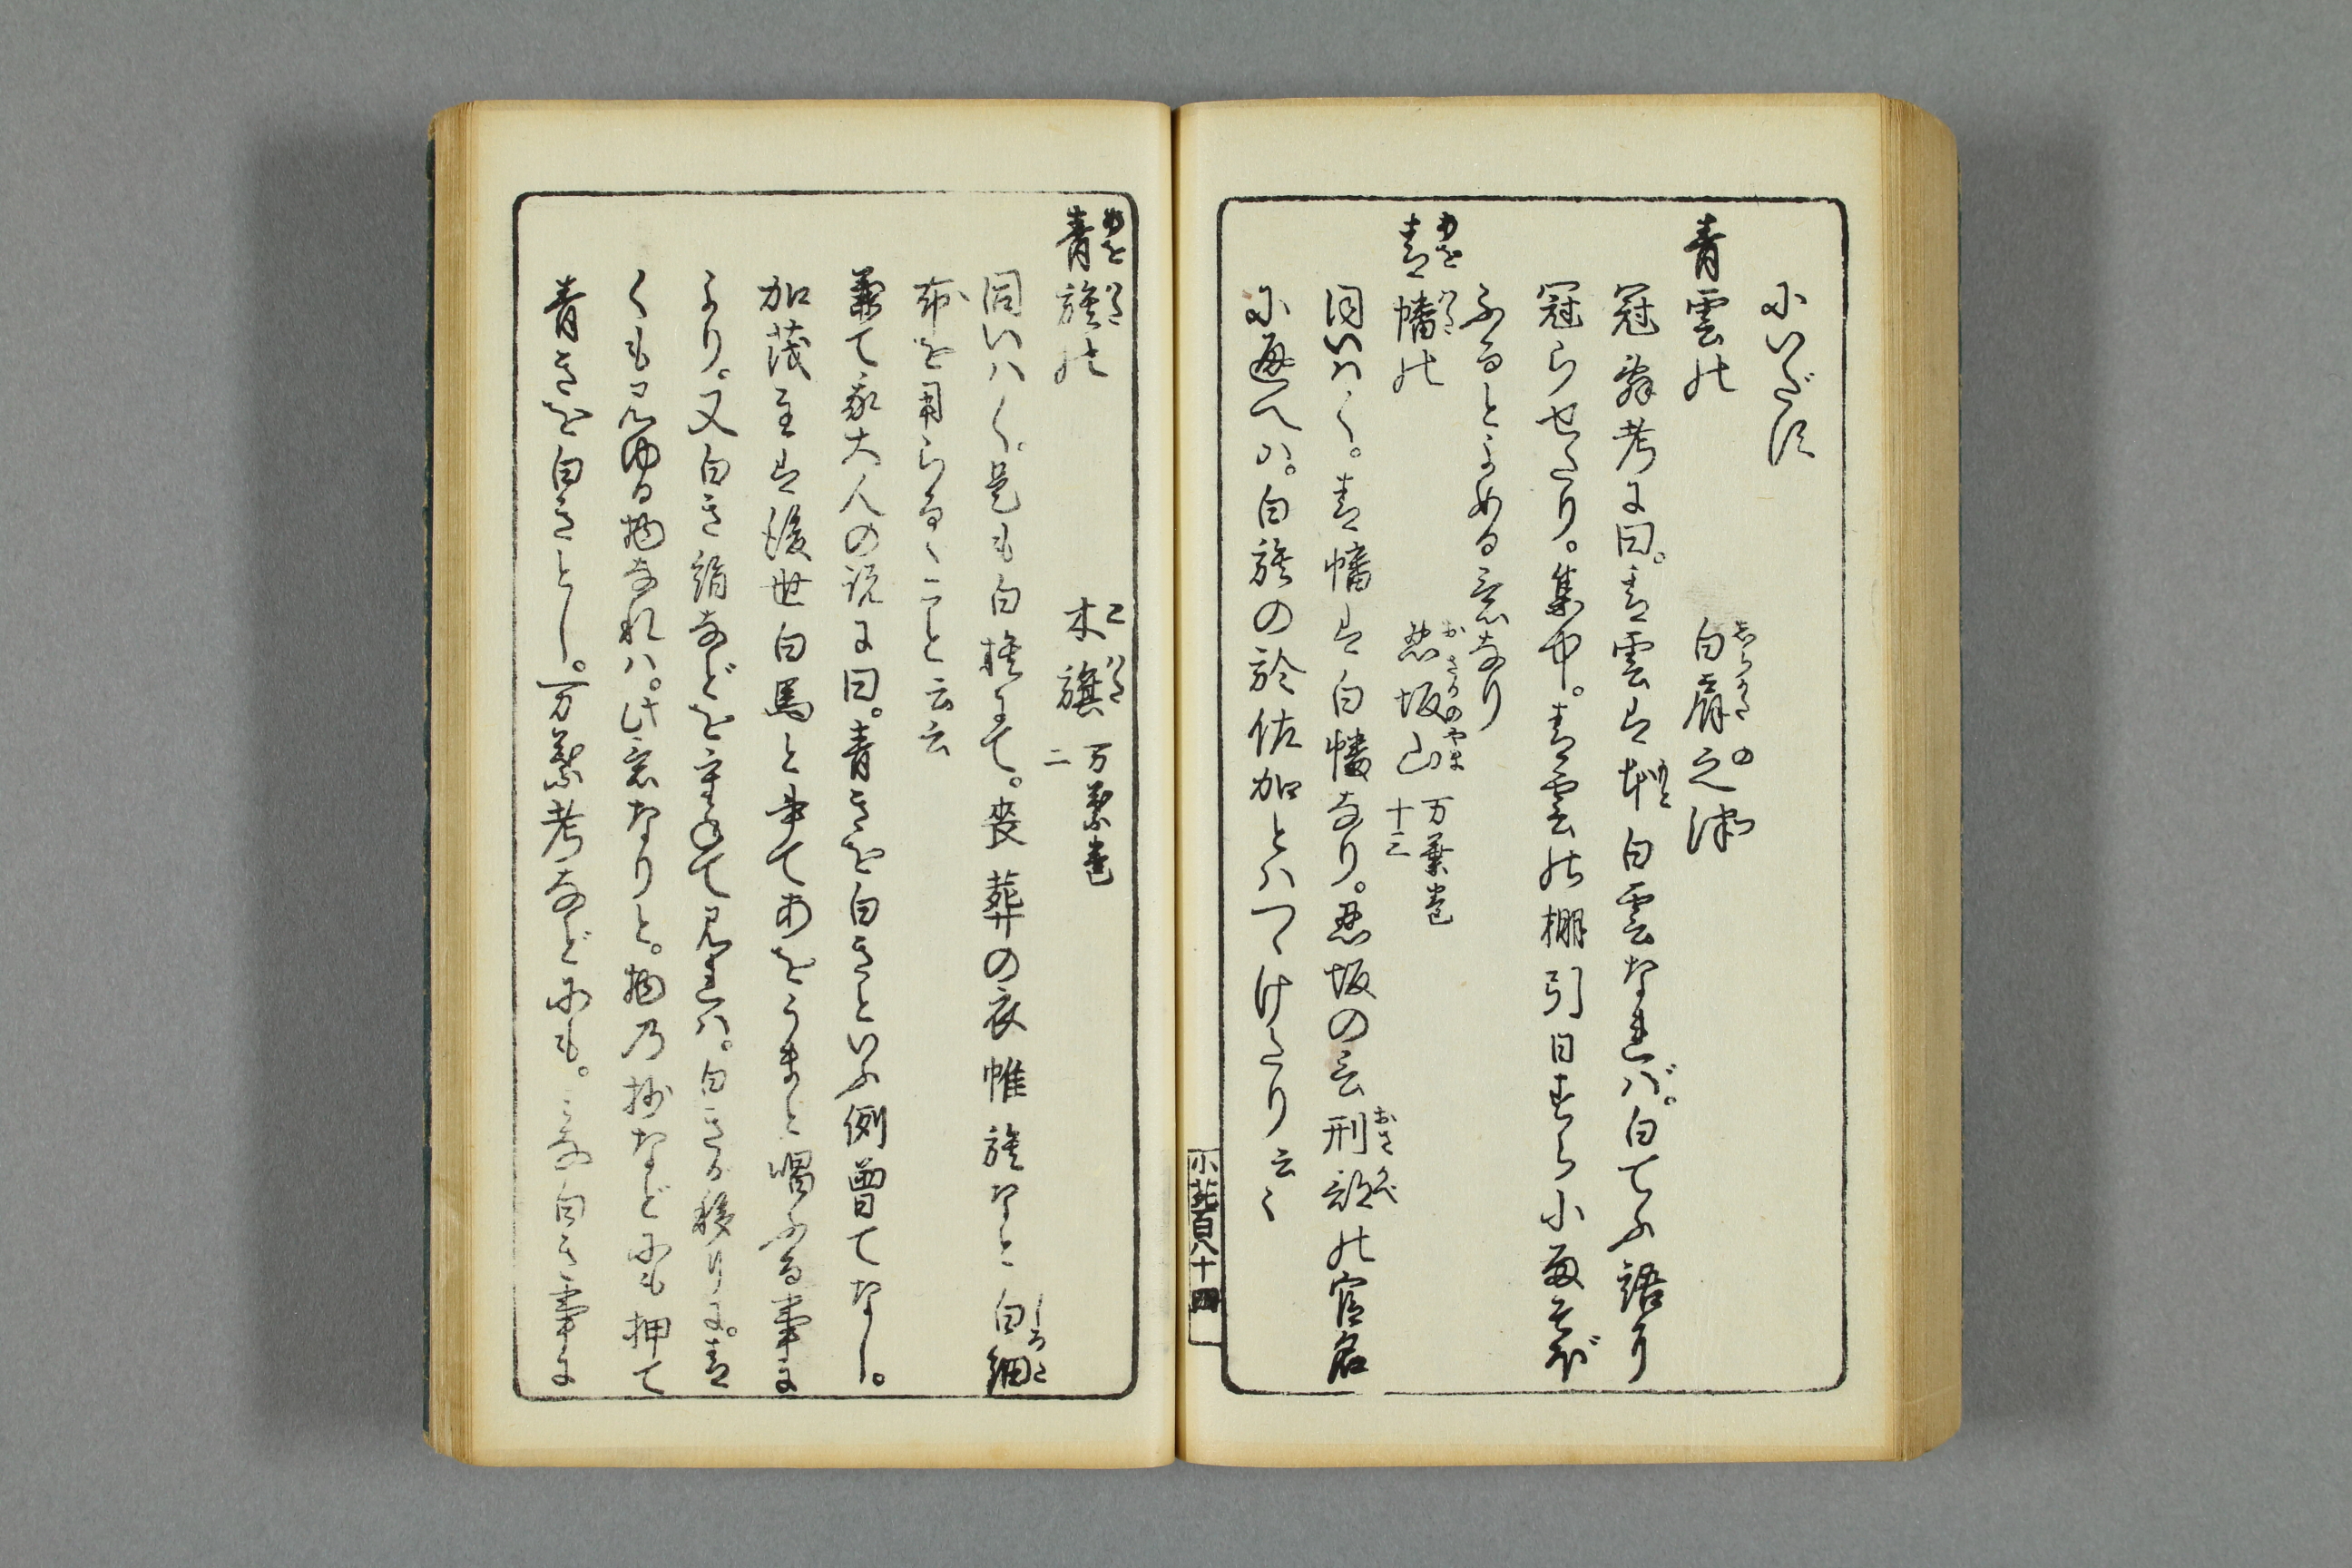 にいだす
青雲の 白肩之津
冠辞考に曰。青雲は本白雲なれバ。白てふ語に
冠らせたり。集中。青雲の棚引日すら小雨そぼ
ふるとよめる意なり
青幡の 忍坂山 万葉巻十三
同いはく。青幡は白幡なり。忍坂の言刑部の官名
に通へハ。白旗の於佐加とハつゝけたり云々
小葌百八十四
青旗の 木旗 万葉巻二
同いハく。是も白旗にて。喪葬の衣帷旗なと白細
布を用らるゝこと云云
兼て家大人の説に曰。青きを白きといふ例曽てなし。
加茂主は後世白馬と書てあをうまと唱ふる事に
より。又白き絹などを重ねて見れハ。白きか移りに。青
くも見ゆる物なれハ。此意なりと。物乃抄などにも押て
青きを白きとし。万葉考などにも。みな白き事に